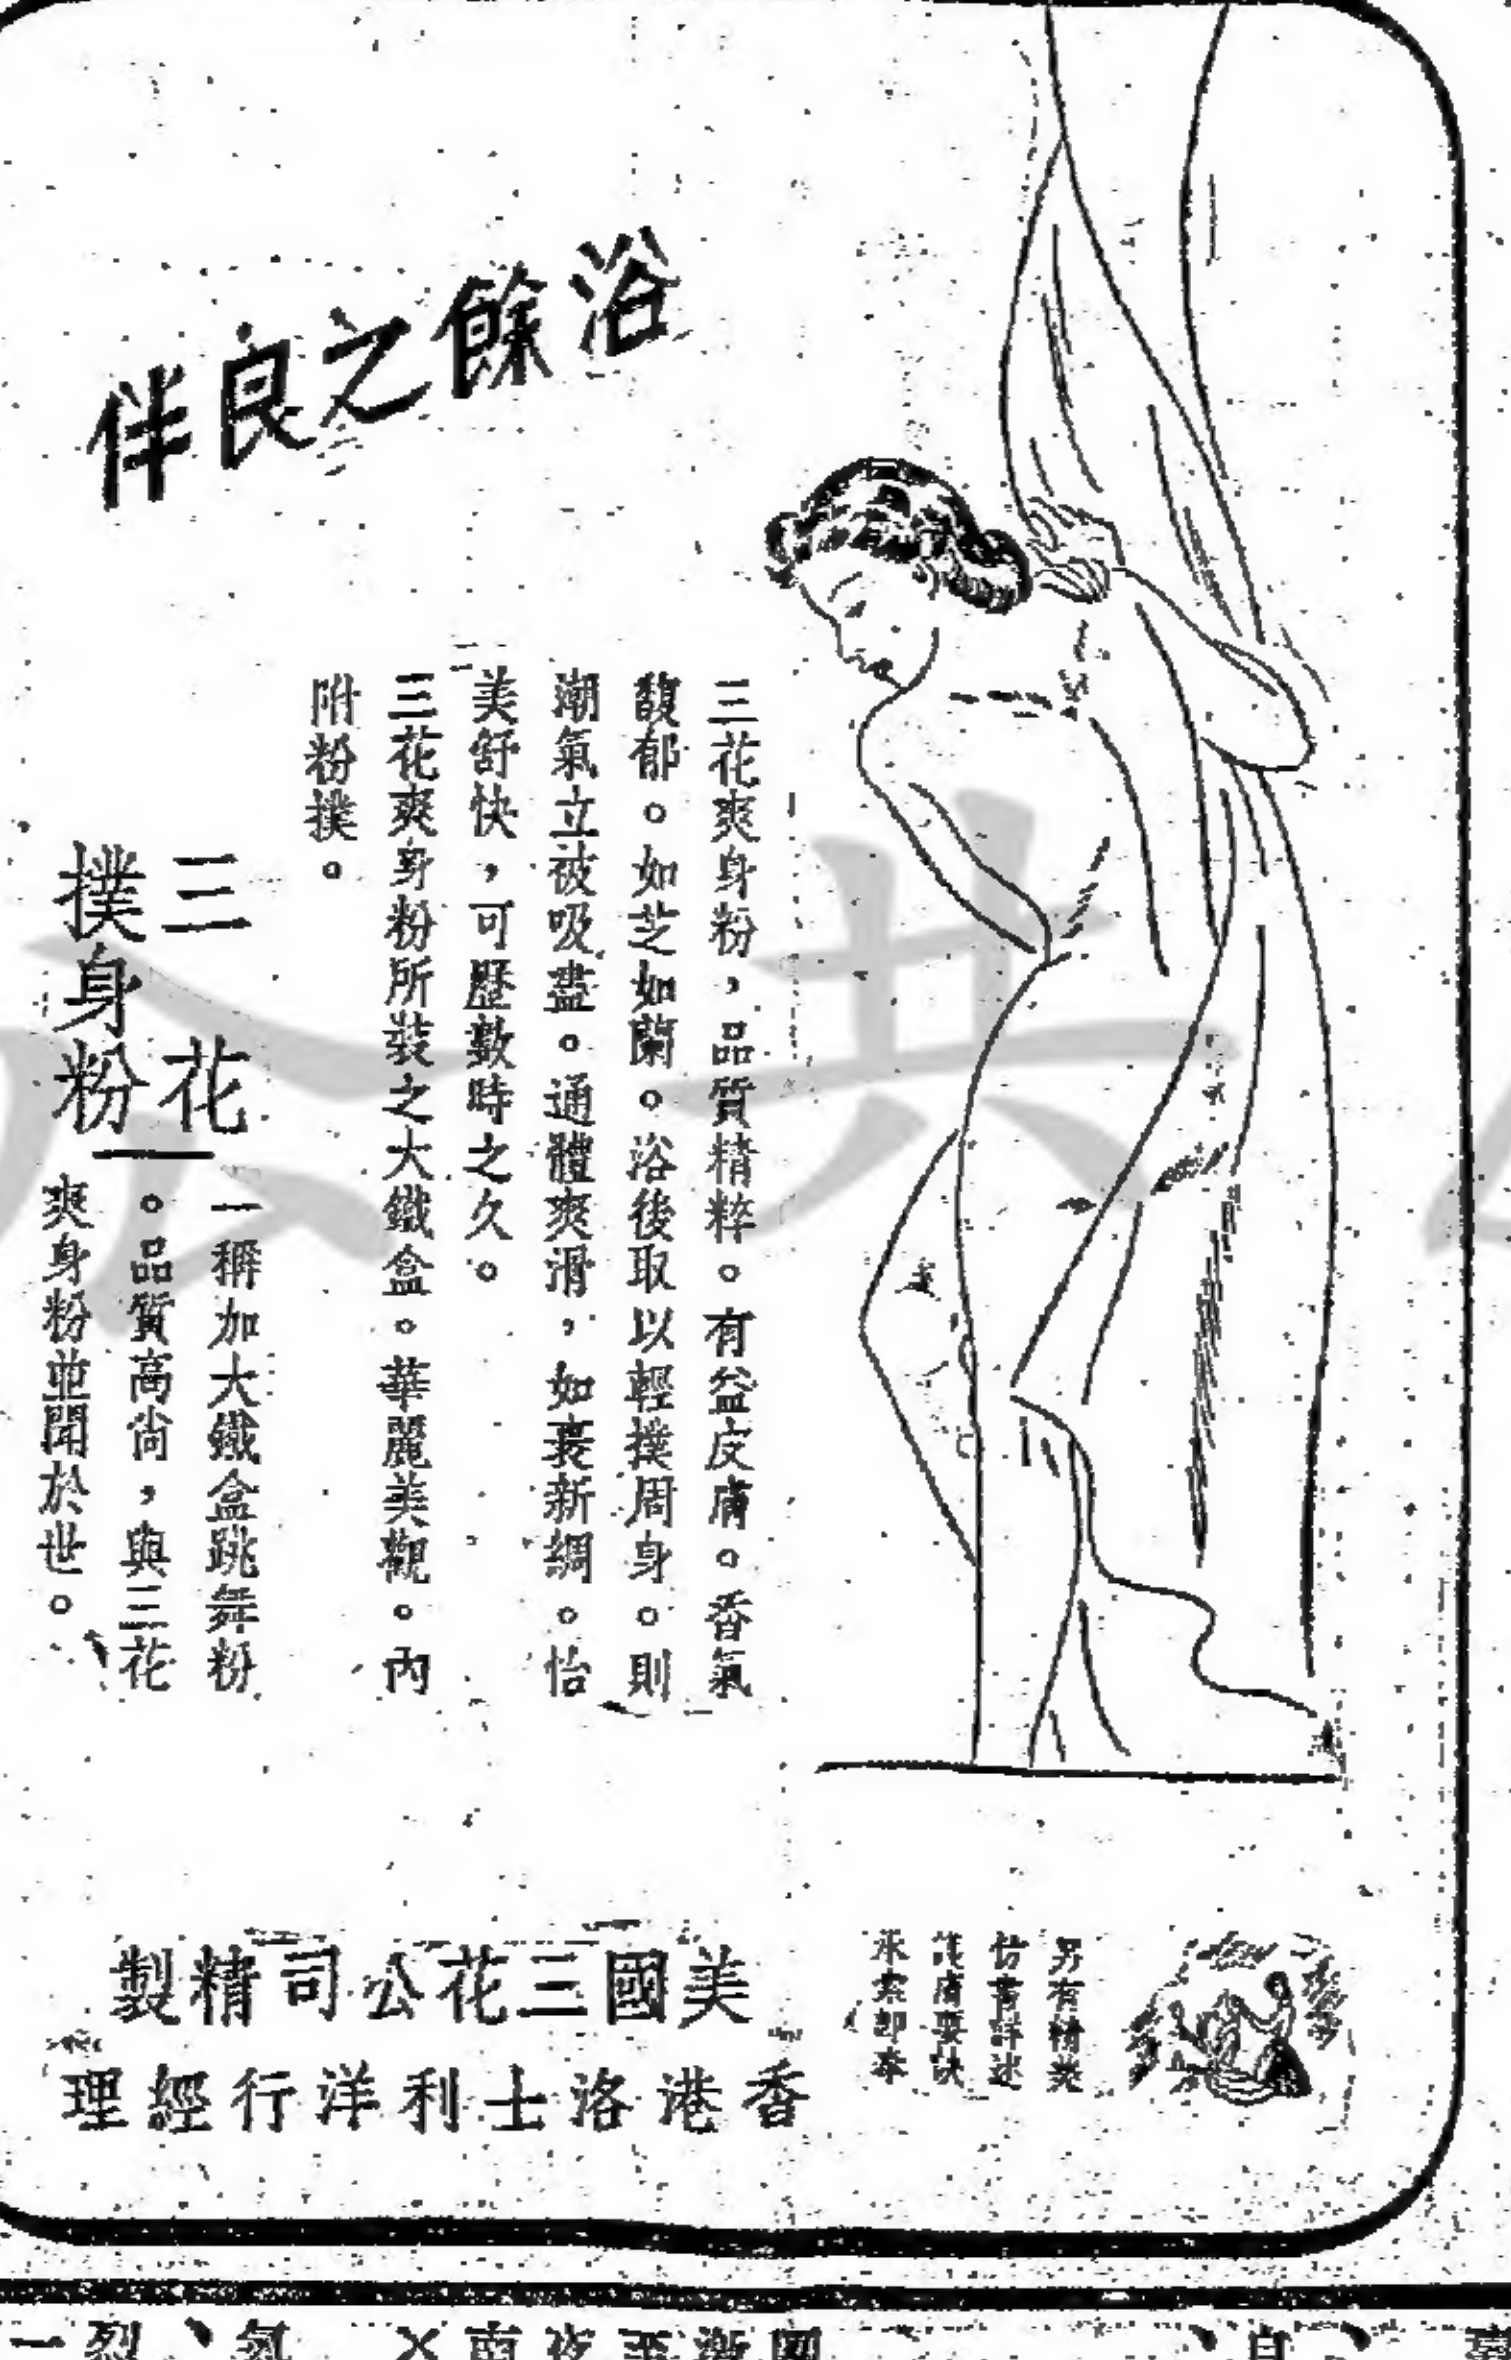 浴餘之良伴
三花爽身粉，品質精粹。有益皮膚。香氣
馥郁。如芝如蘭。浴後取以輕撲周身。則
潮氣立被吸盡。通體爽滑，如裹新綢。怡
美舒快，可歷數時之久。
三花爽身粉所裝之大鐵盒。華麗美觀。內
附粉撲。
三花
撲身粉
一稱加大鐵盒跳舞粉
。品質高尚，與三花
爽身粉並聞於世。
另有精美
仿書詳述
護膚要訣
承索即奉
美國三花公司精製
香港洛士利洋行經理
公共